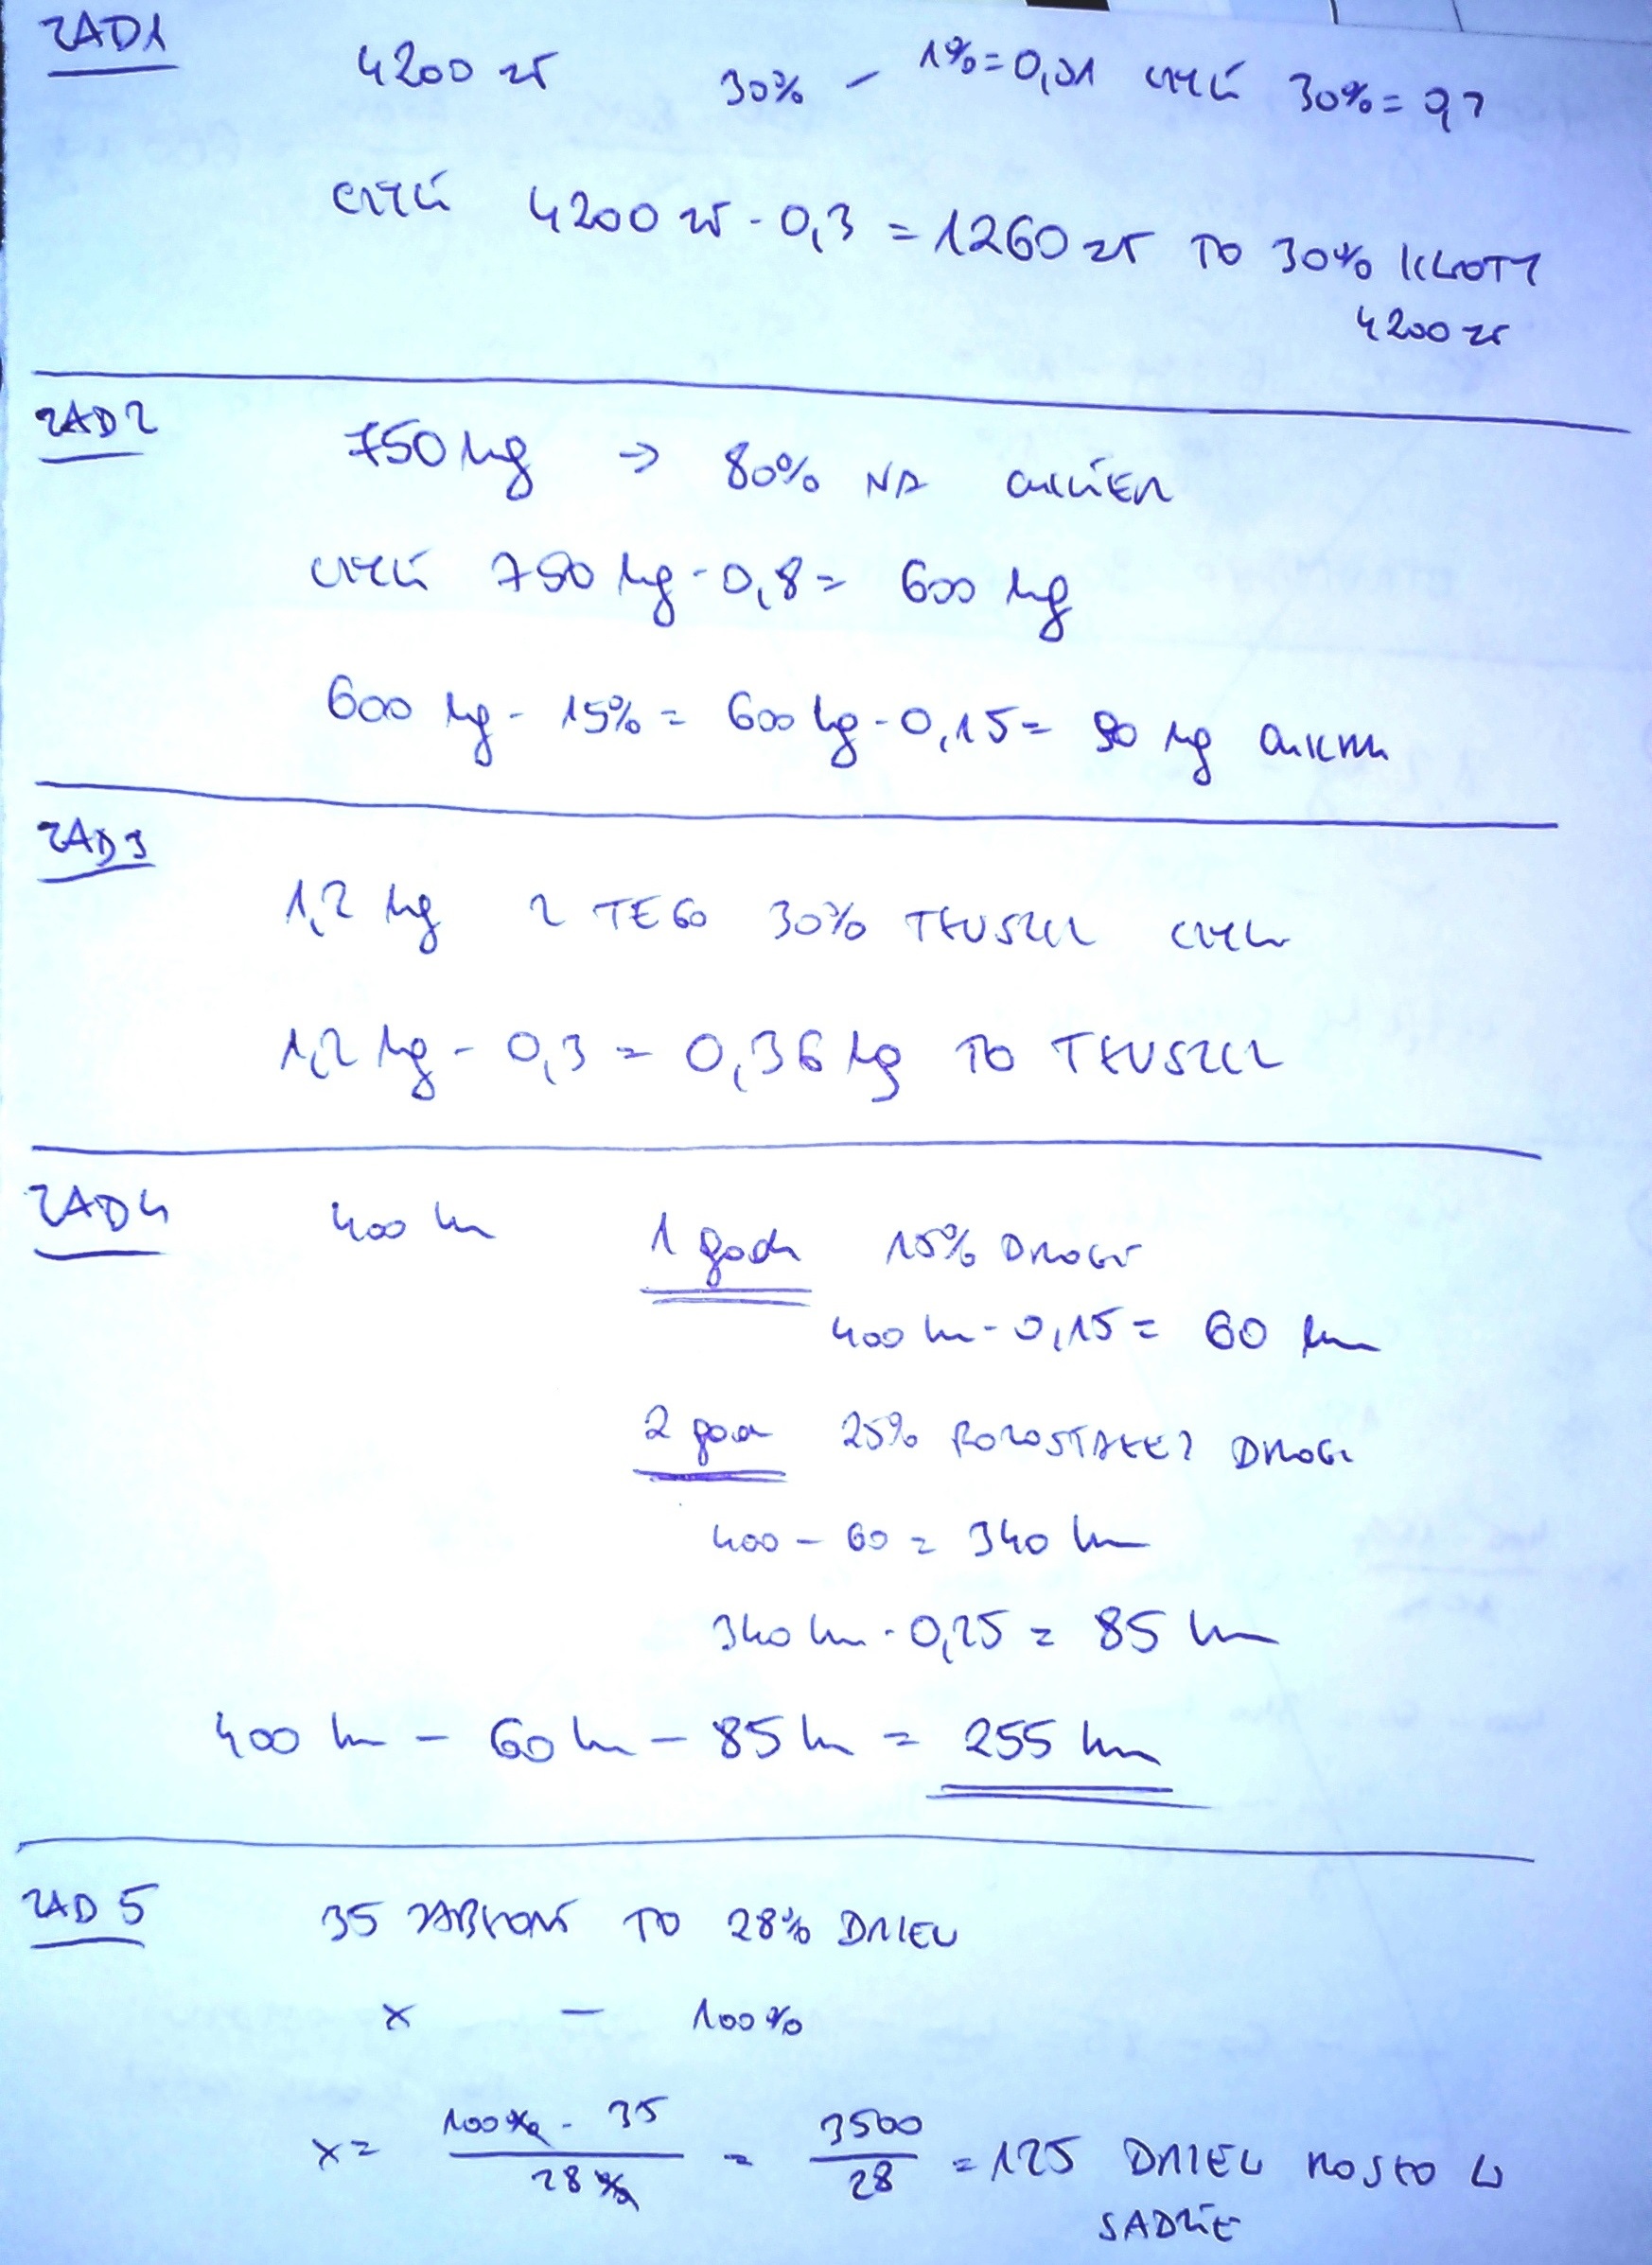 ZAD1
4200 zł 30% - 1%=0,01 czyli 30% = 0,3
czyli 4200 zł · 0,3 = 1260 zł TO 30% KWOTY
4200 zł
ZAD2
750 kg → 80% NA CUKIER
czyli 750 kg · 0,8 = 600 kg
600 kg · 15% = 600 kg · 0,15 = 90 kg CUKRU
ZAD3
1,2 kg Z TEGO 30% TŁUSZCZ CZYLI
1,2 kg · 0,3 = 0,36 kg TO TŁUSZCZ
ZAD4
400 km 1 godz 15% DROGI
400 km · 0,15 = 60 km
2 godz 25% POZOSTAŁEJ DROGI
400 - 60 = 340 km
340 km · 0,25 = 85 km
400 km - 60 km - 85 km = 255 km
ZAD 5
35 JABŁONI TO 28% DRZEW
x - 100%
x = 100% · 35 / 28% = 3500 / 28 = 125 DRZEW ROSŁO W
SADZIE